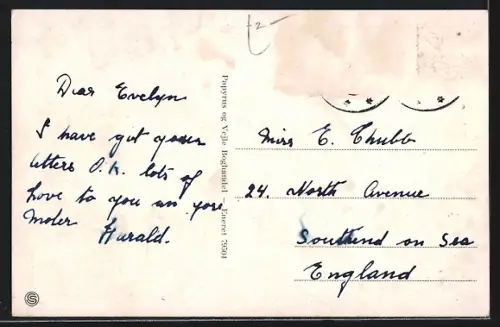 Dear Evelyn
I have got youer
letters O.K. lots of
love to you an your
Moter Harald.
Papyrus og Vejle Boghandel - Eneret 79501
Miss E. Chubb
24. North Avenue
Southend on Sea
England